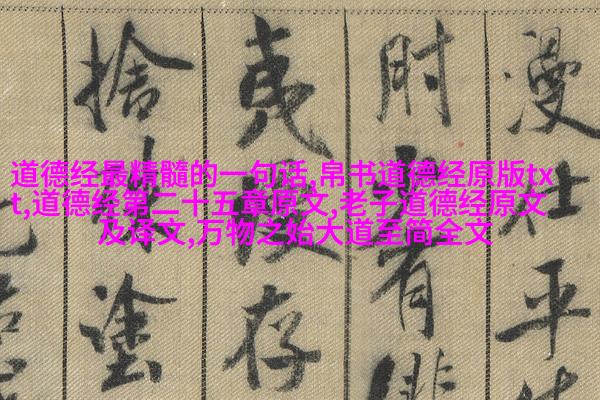 道德经最精髓的一句话,帛书道德经原版tx
t,道德经第二十五章原文,老子道德经原文
及译文,万物之始大道至简全文
漫壮平
时有
夷存
捨塗